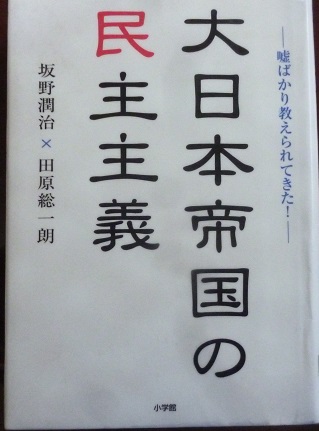 ―嘘ばかり教えられてきた！―
大日本帝国の
民主主義
坂野潤治×田原総一朗
小学館